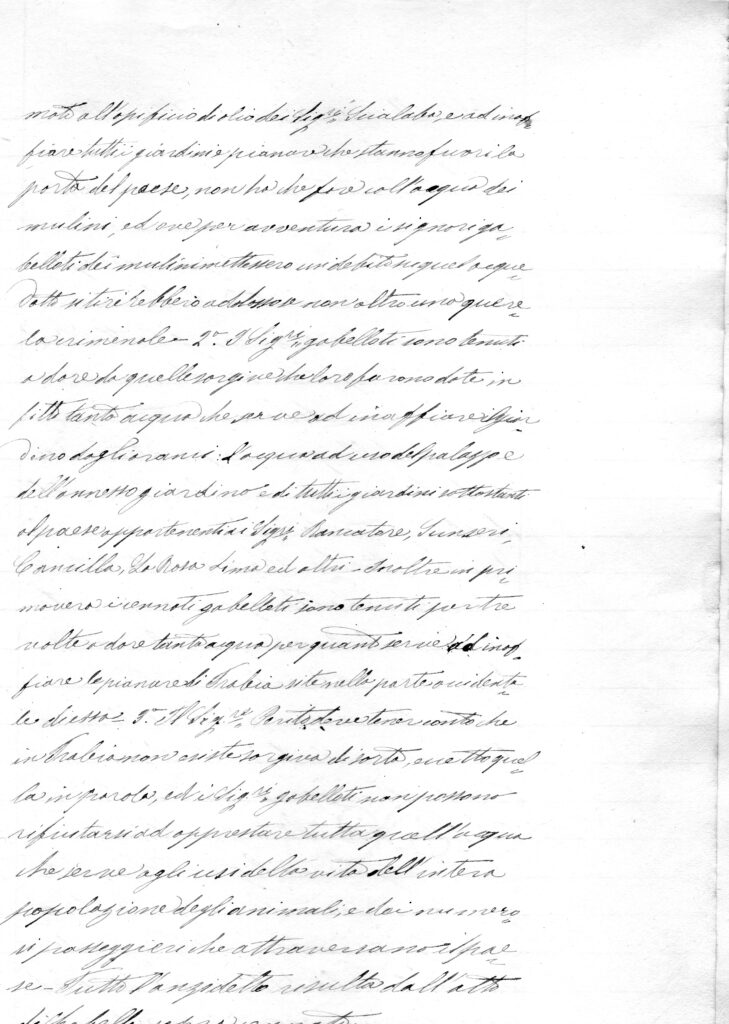 moto all'opificio di olio dei Sig.ri Scialabo, e ad inaf=
fiare tutti i giardini e pianare che stanno fuori la
porta del paese, non ha che fare coll'acqua dei
mulini, ed ove per avventura i signori ga=
belloti dei mulini mettessero un dito su quel acque=
dotto si tirerebbero addosso non altro una quere=
la criminale - 2.° I Sig.ri gabelloti sono tenuti
a dare da quelle sorgive che loro furono date in
fitto tanta acqua che serve ad inaffiare i giar
dino dagli aranci: l'acqua ad uso del palazzo e
dell'annesso giardino e di tutti i giardini sottostanti
al paese appartenenti ai Sig.ri Rancatore, Sunseri,
Cancilla, La Rosa Lima ed altri - Inoltre in pri=
mavera i cennati gabelloti sono tenuti per tre
volte a dare tanta acqua per quant serve ad inaf=
fiare le pianare di Trabia site nella parte occidenta=
le di essa - 3.° Il Sig.re Perito deve tener conto che
in Trabia non esiste sorgiva di sorta, eccetto quel=
la in parola, ed i Sig.ri gabelloti non possono
rifiutarsi ad apprestare tutta quell'acqua
che serve agli usi della vita dell'intera
popolazione degli animali, e dai numero
si passeggieri che attraversano il pae=
se - Tutto l'anzidetto risulta dall'atto
di gabella sopra cennato